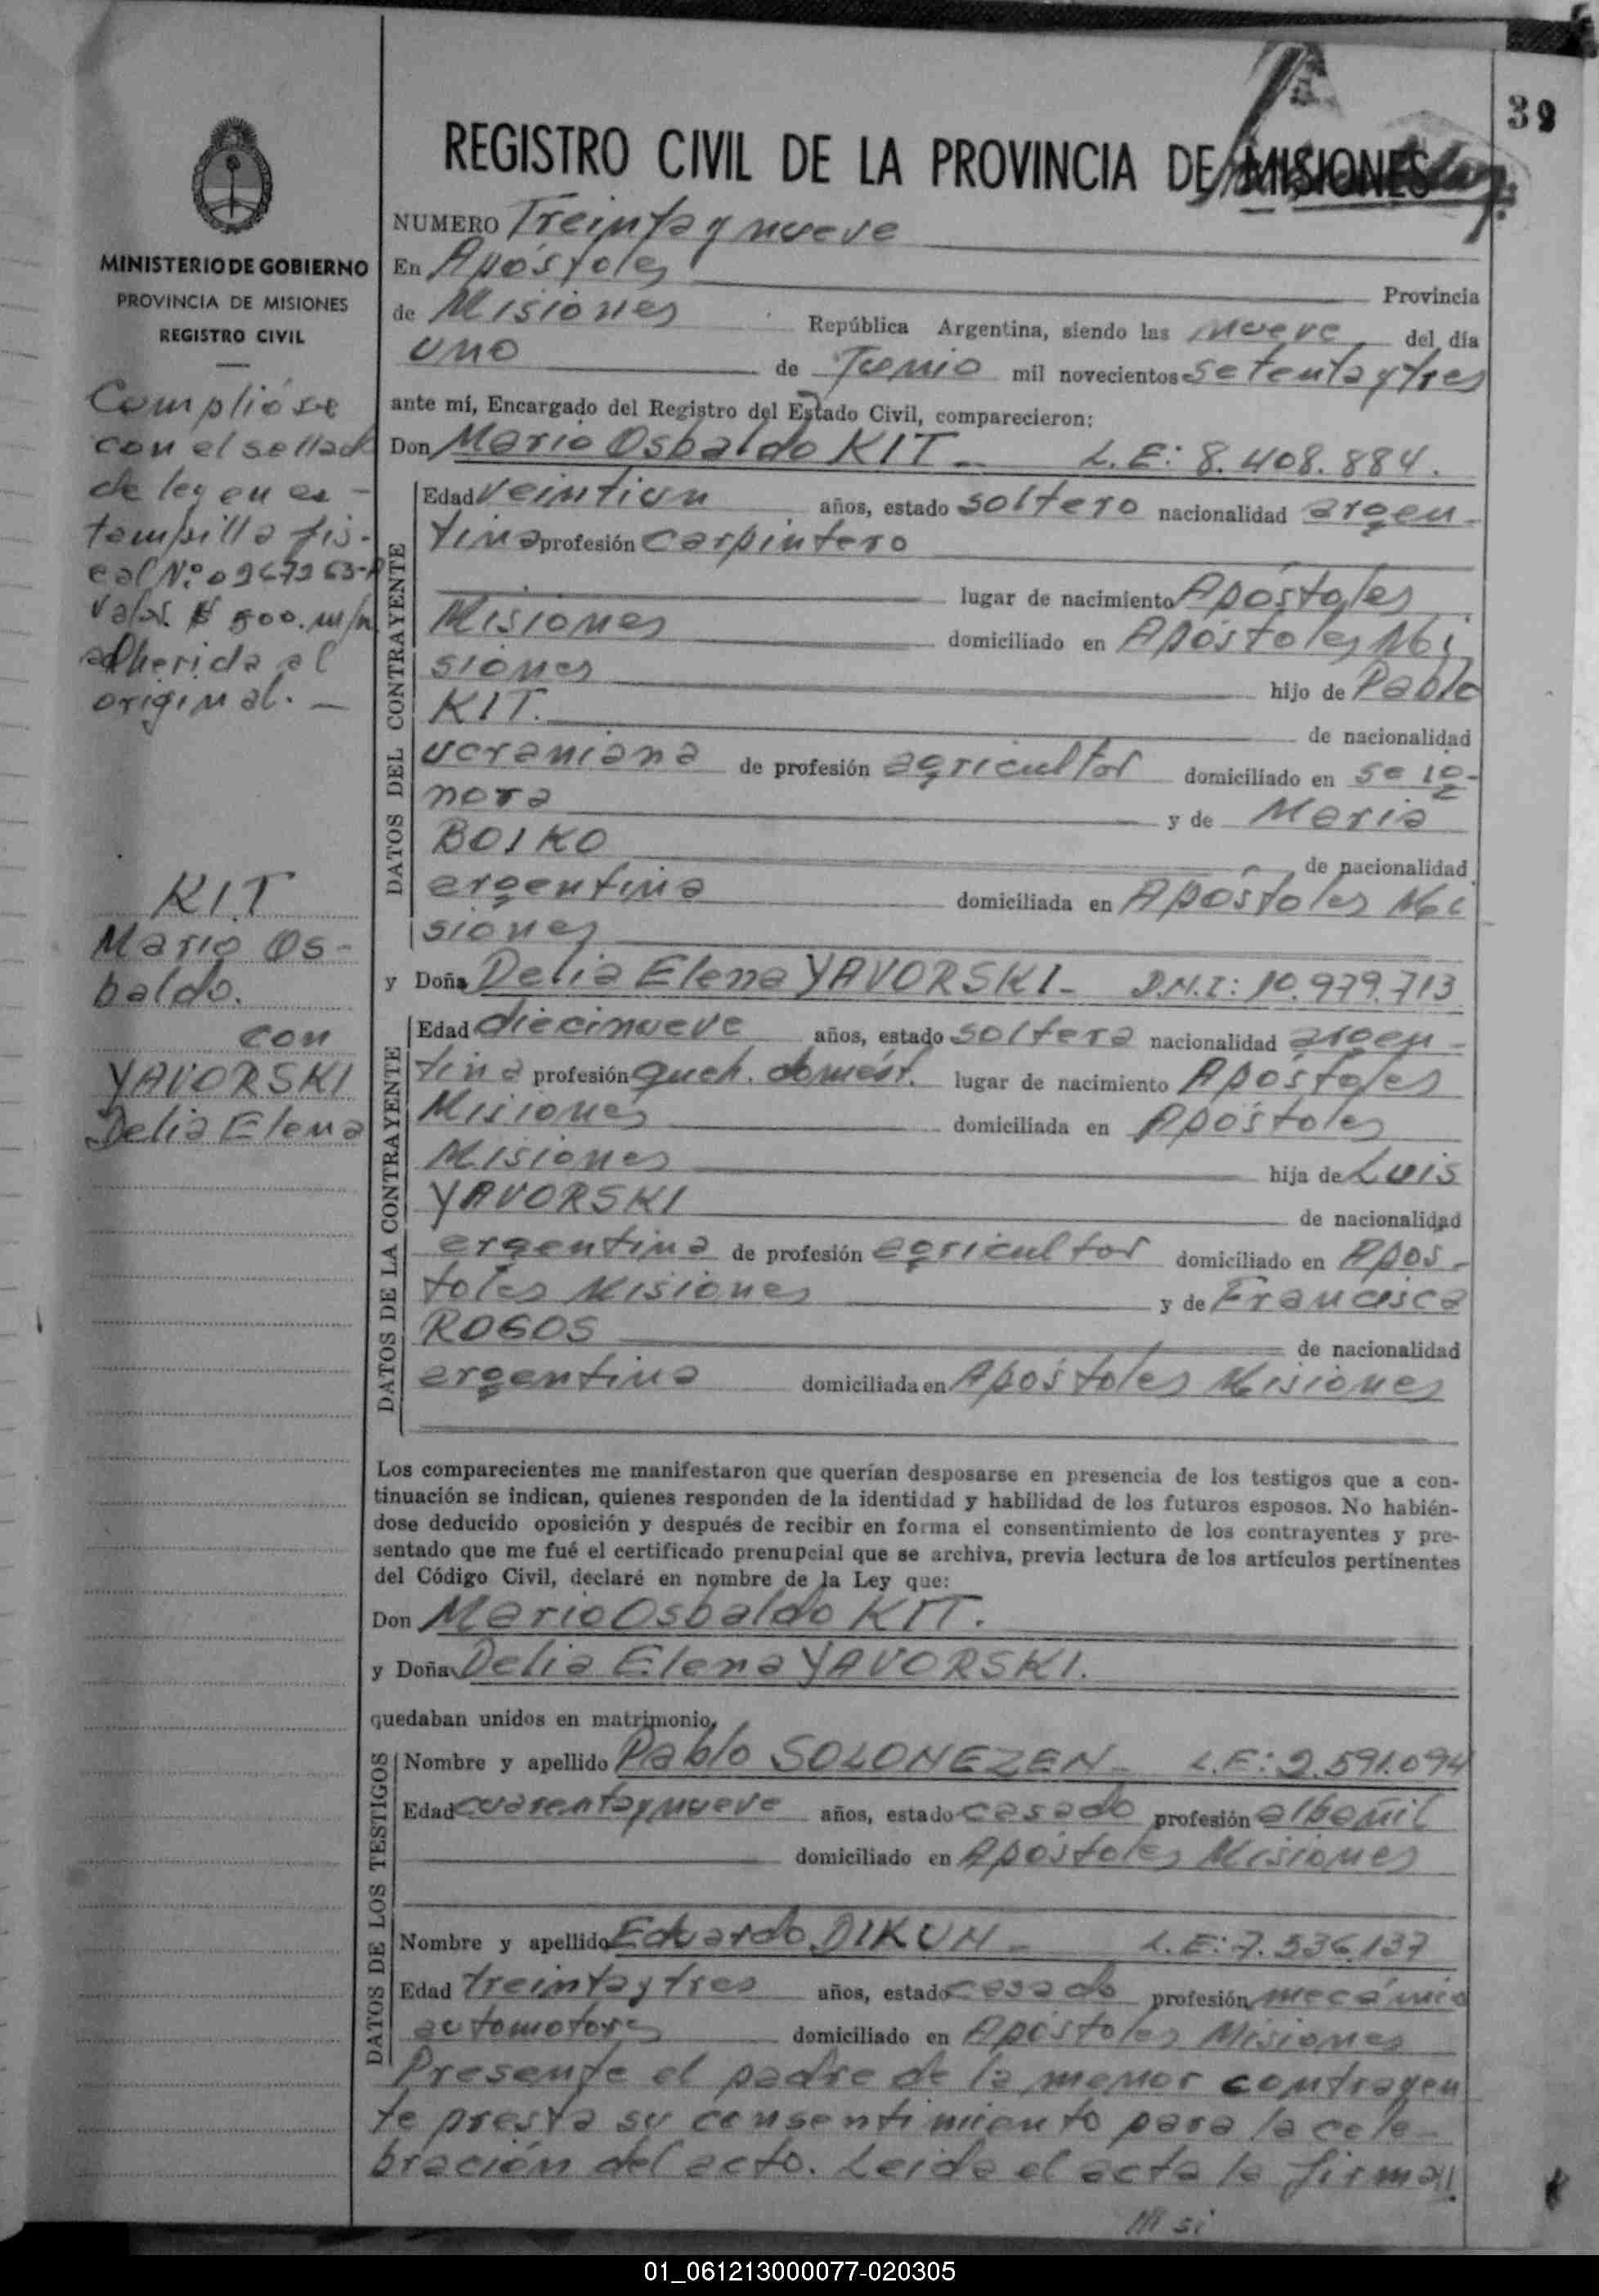 39
REGISTRO CIVIL DE LA PROVINCIA DE MISIONES
NUMERO Treinta y nueve
MINISTERIO DE GOBIERNO
PROVINCIA DE MISIONES
REGISTRO CIVIL
En Apóstoles Provincia
de Misiones República Argentina, siendo las nueve del día
uno de Junio mil novecientos setenta y tres
ante mí, Encargado del Registro del Estado Civil, comparecieron:
Complióse
con el sellado
de ley en es-
tampilla fis-
cal Nº
valor $ 500. m/n
adherida al
original. —
KIT
Mario Os-
baldo.
con
YAVORSKI
Delia Elena
Don Mario Osbaldo KIT - L.E: 8.408.884.
DATOS DEL CONTRAYENTE
Edad veintiun años, estado soltero nacionalidad argen-
tina profesión carpintero
lugar de nacimiento Apóstoles
Misiones domiciliado en Apóstoles Mi
siones hijo de Pablo
KIT. de nacionalidad
ucraniana de profesión agricultor domiciliado en se ig-
nora y de Maria
BOIKO de nacionalidad
argentina domiciliada en Apóstoles Mi
siones
y Doña Delia Elena YAVORSKI - D.N.I: 10.979.713
DATOS DE LA CONTRAYENTE
Edad diecinueve años, estado soltera nacionalidad argen-
tina profesión queh. domést. lugar de nacimiento Apóstoles
Misiones domiciliada en Apóstoles
Misiones hija de Luis
YAVORSKI de nacionalidad
argentina de profesión agricultor domiciliado en Apos-
toles Misiones y de Francisca
ROGOS de nacionalidad
argentina domiciliada en Apóstoles Misiones
Los comparecientes me manifestaron que querían desposarse en presencia de los testigos que a con-
tinuación se indican, quienes responden de la identidad y habilidad de los futuros esposos. No habién-
dose deducido oposición y después de recibir en forma el consentimiento de los contrayentes y pre-
sentado que me fué el certificado prenupcial que se archiva, previa lectura de los artículos pertinentes
del Código Civil, declaré en nombre de la Ley que:
Don Mario Osbaldo KIT.
y Doña Delia Elena YAVORSKI.
quedaban unidos en matrimonio.
DATOS DE LOS TESTIGOS
Nombre y apellido Pablo SOLONEZEN - L.E: 2.591.094
Edad cuarenta y nueve años, estado casado profesión albañil
domiciliado en Apóstoles Misiones
Nombre y apellido Eduardo DIKUN - L.E: 7.536.137
Edad treinta y tres años, estado casado profesión mecánico
automotores domiciliado en Apóstoles Misiones
Presente el padre de la menor contrayen
te presta su consentimiento para la cele-
bración del acto. Leida el acta la firma
01_061213000077-020305